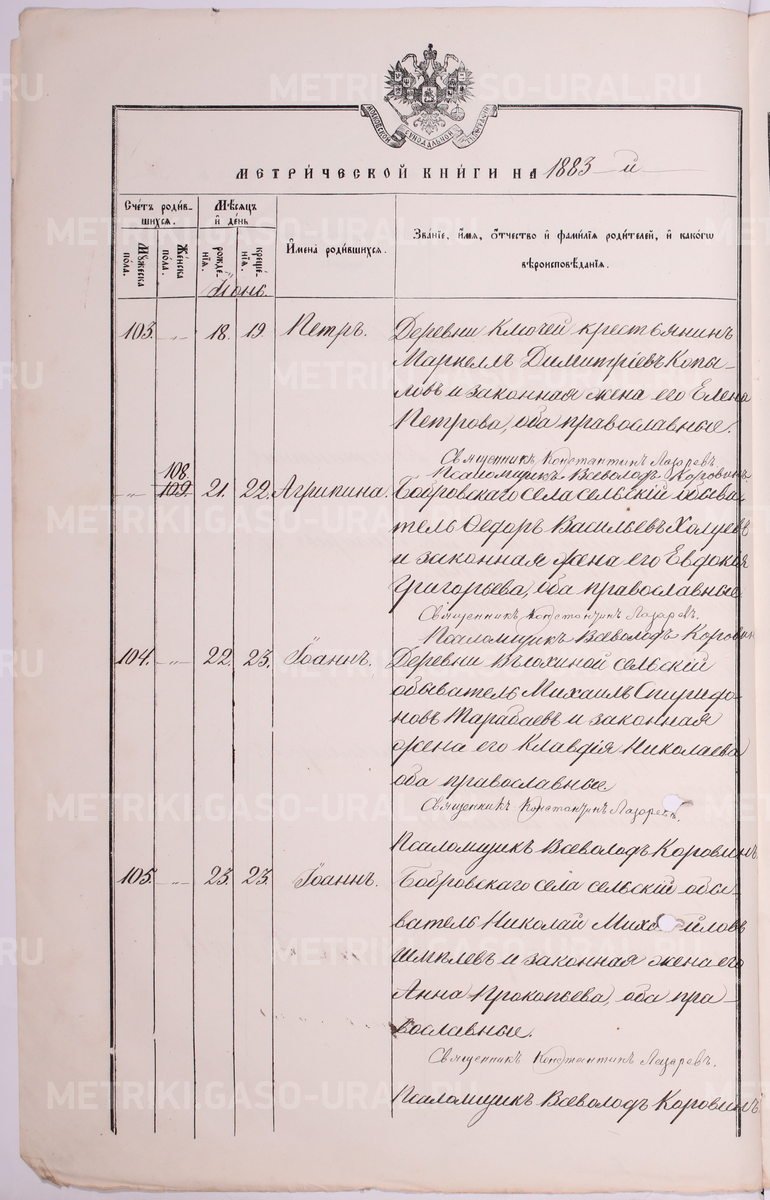 МОСКОВСКОЙ СѴНОДАЛЬНОЙ ТИПОГРАФІИ
МЕТРИ́ЧЕСКОЙ КНИ́ГИ НА 1883 й
Счéтъ роди́в-
шихся.
Мꙋ́жеска
пóла.
Жéнска
пóла.
Мѣ́сяцъ
и́ дéнь
рождé-
нїя.
крещé-
нїя.
И҆менà роди́вшихся.
Звáнїе, и҆́мя, ѻ҆́тчество и҆ фами́лїя роди́телей, и҆ какóгѡ
вѣроисповѣ́данїя.
Іюнь.
103. „ 18. 19. Петръ. Деревни Ключей крестьянинъ
Маркеллъ Димитріевъ Копы-
ловъ и законная жена его Елена
Петрова, оба православные.
Священникъ Константинъ Лазаревъ.
Псаломщикъ Всеволодъ Коровинъ
108
„ 109. 21. 22. Агрипина. Бобровскаго села сельскій обыва-
тель Ѳедоръ Васильевъ
и законная жена его Евдокія
Григорьева, оба православные
Священникъ Константинъ Лазаревъ.
Псаломщикъ Всеволодъ Коровин
104. „ 22. 23. Іоаннъ. Деревни сельскій
обыватель Михаилъ Спиридо-
новъ Тарабаевъ и законная
жена его Клавдія Николаева
оба православные
Священникъ Константинъ Лазаревъ.
Псаломщикъ Всеволодъ Коровинъ
105. „ 23. 23. Іоаннъ. Бобровскаго села сельскій обы-
ватель Николай Михайловъ
Шмелевъ и законная жена его
Анна Прокопьева, оба пра-
вославные.
Священникъ Константинъ Лазаревъ.
Псаломщикъ Всеволодъ Коровинъ
METRIKI.GASO-URAL.RU